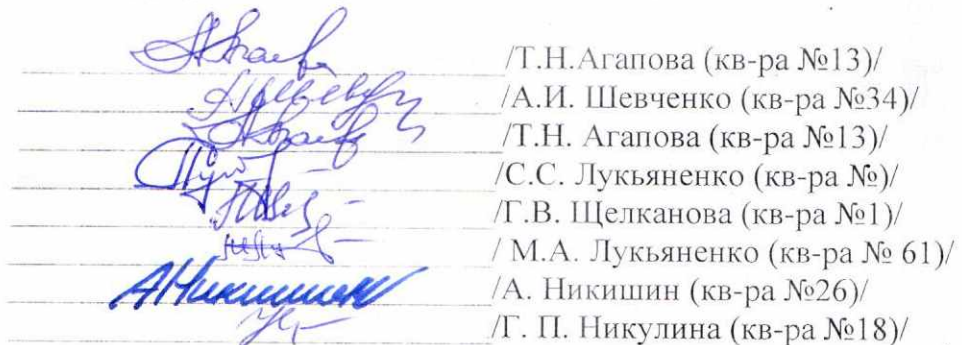 /Т.Н.Агапова (кв-ра №13)/
/А.И. Шевченко (кв-ра №34)/
/Т.Н. Агапова (кв-ра №13)/
/С.С. Лукьяненко (кв-ра №)/
/Г.В. Щелканова (кв-ра №1)/
/ М.А. Лукьяненко (кв-ра № 61)/
АНикишин /А. Никишин (кв-ра №26)/
/Г. П. Никулина (кв-ра №18)/